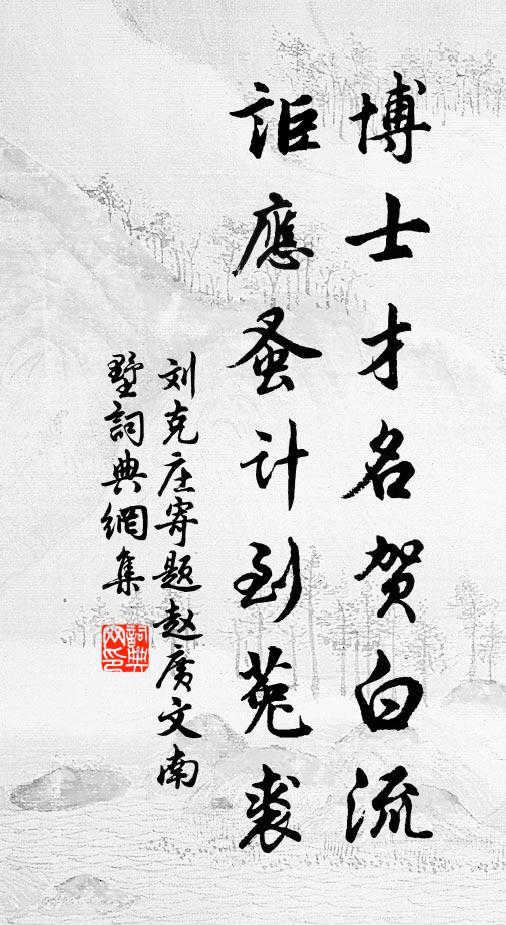 博士才名贺白流
詎應蚤計到菟裘
刘克庄寄题赵广文南
墅詞典網集
詞典